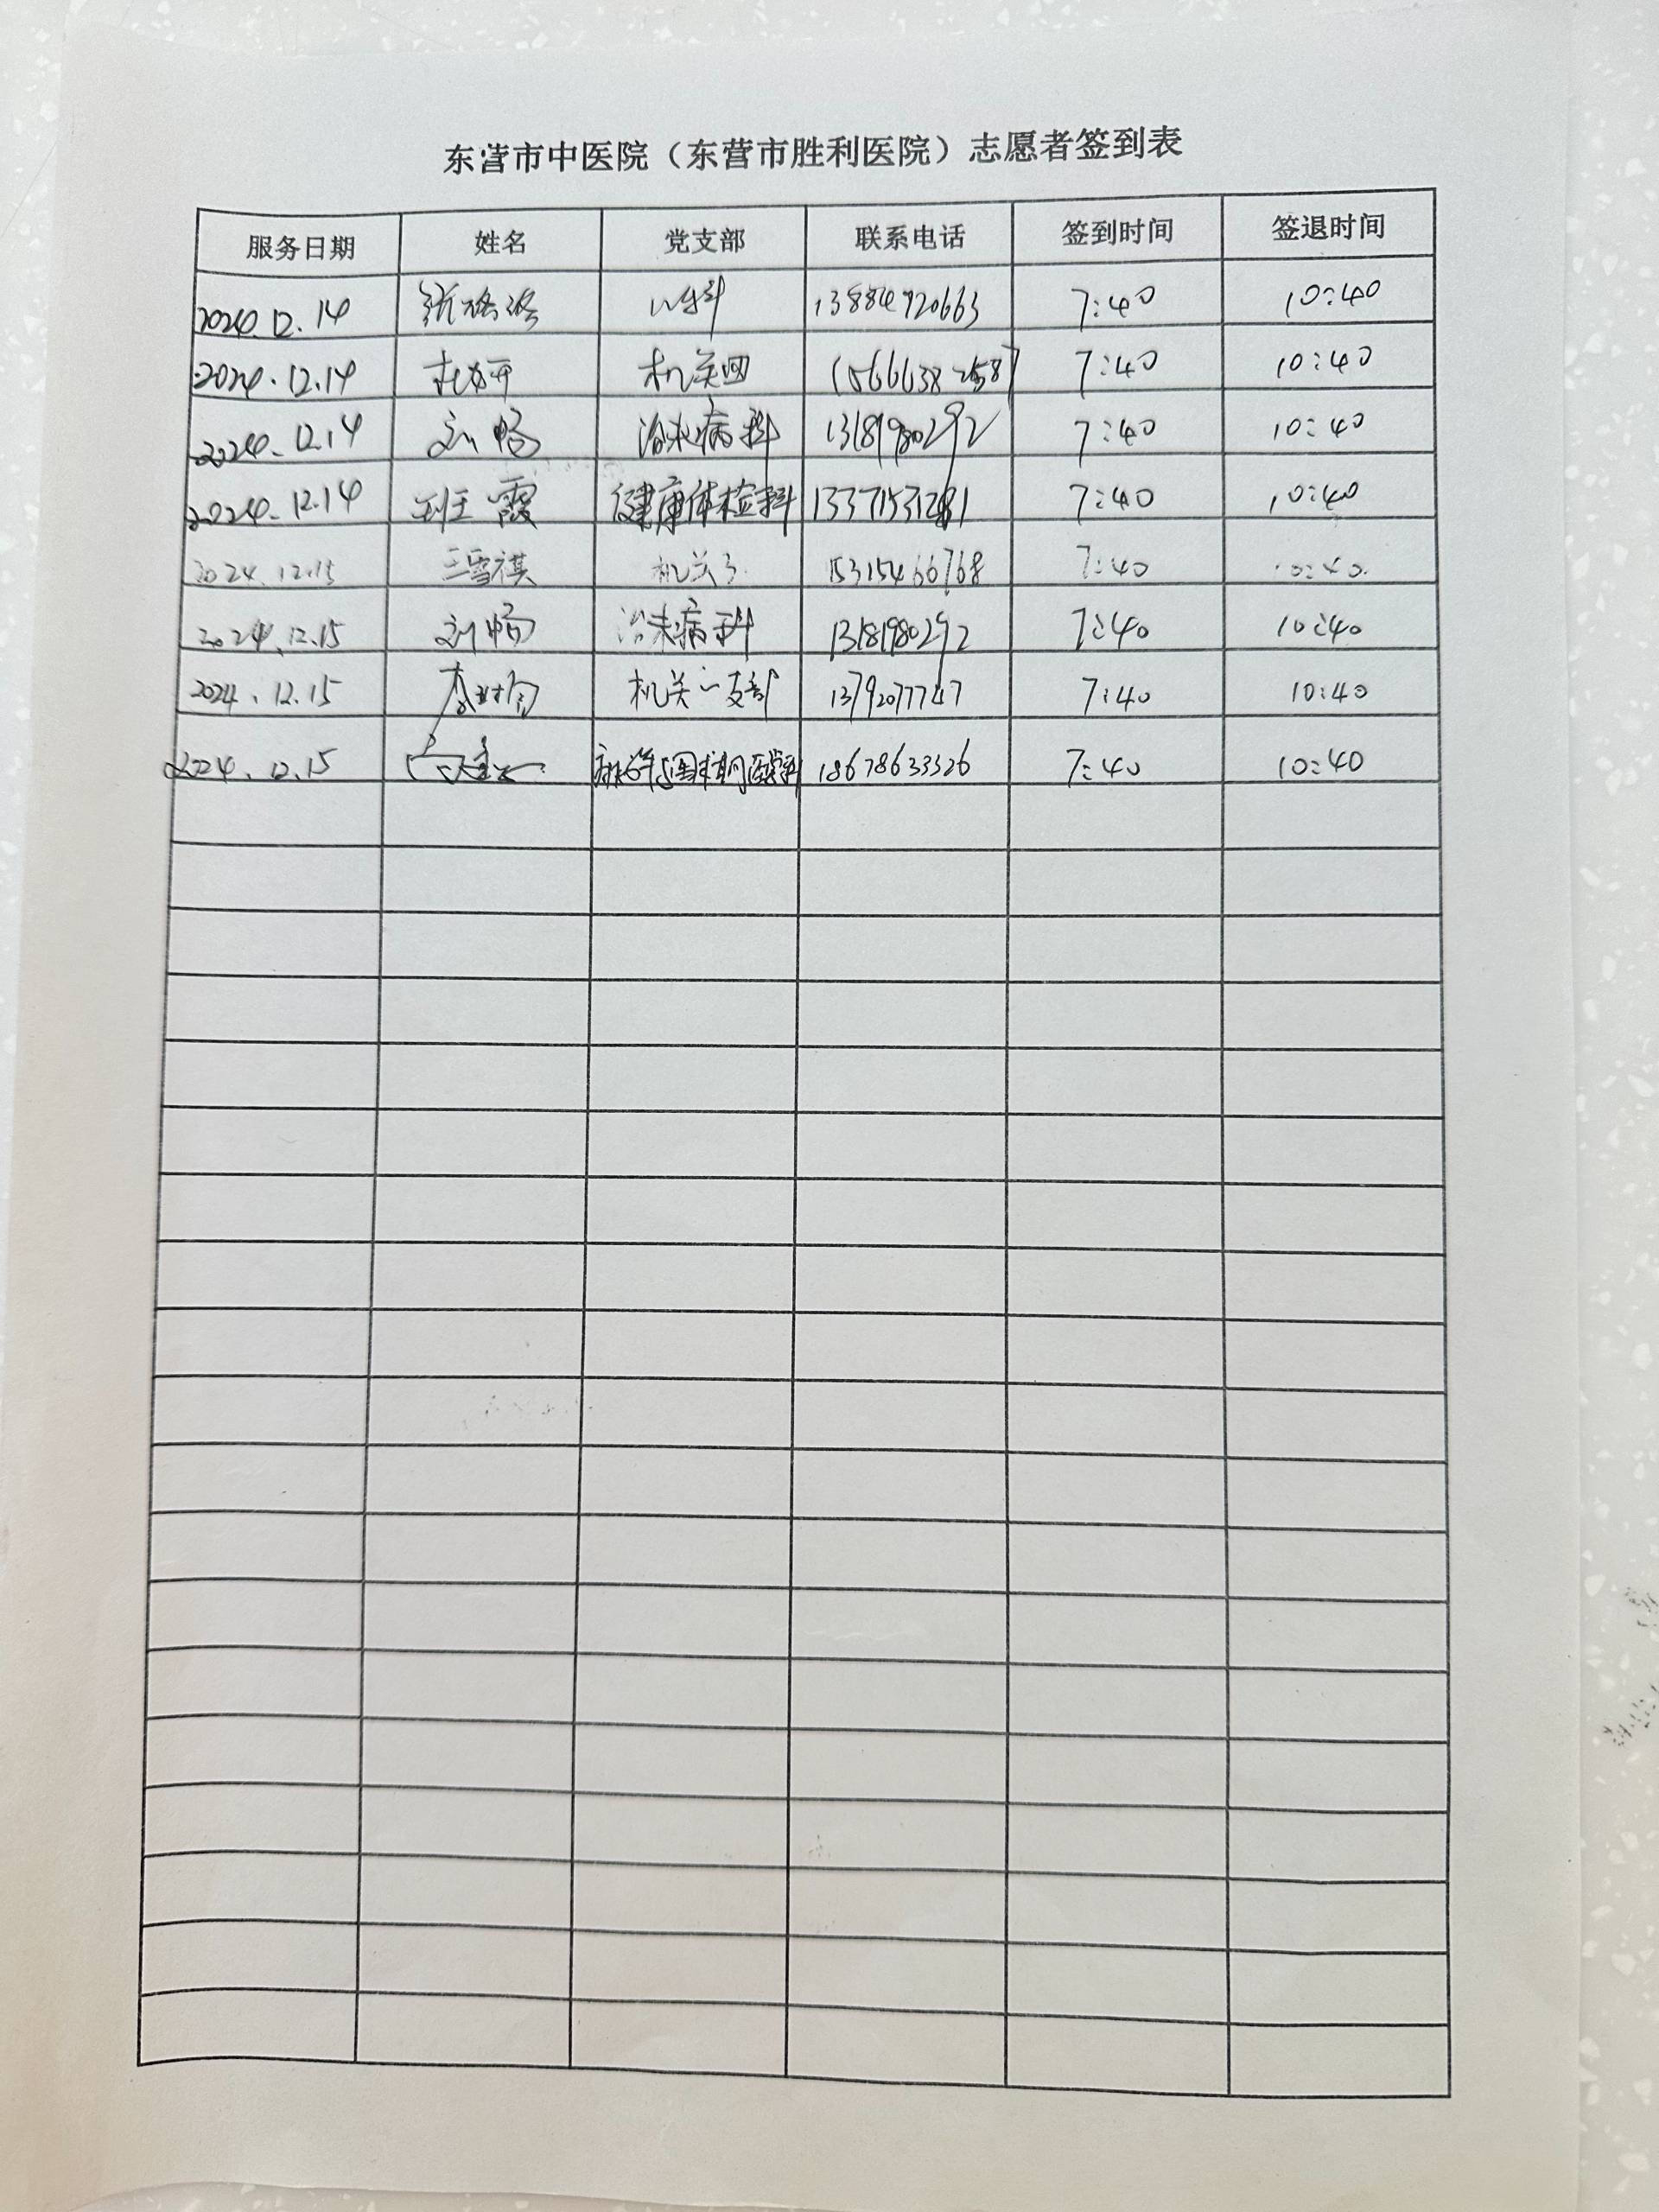 东营市中医院（东营市胜利医院）志愿者签到表
服务日期 姓名 党支部 联系电话 签到时间 签退时间
2024.12.14 13884920663 7:40 10:40
2024.12.14 机关四 15666382587 7:40 10:40
2024.12.14 刘畅 治未病科 13181980292 7:40 10:40
2024.12.14 王霞 健康体检科 7:40 10:40
2024.12.15 王雪祺 机关3 15315466768 7:40 10:40.
2024.12.15 刘畅 治未病科 13181980292 7:40 10:40
2024.12.15 李 机关一支部 13792077747 7:40 10:40
2024.12.15 18678633326 7:40 10:40